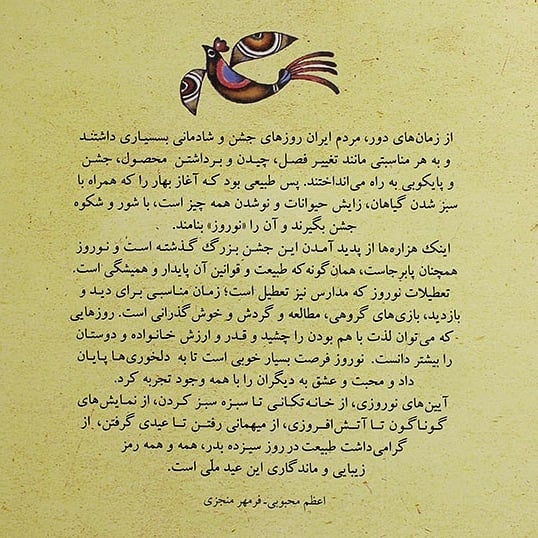 از زمان‌های دور، مردم ایران روزهای جشن و شادمانی بسسیاری داشتند
و به هر مناسبتی مانند تغییر فصل، چیدن و برداشتن محصول، جشن
و پایکوبی به راه می‌انداختند. پس طبیعی بود که آغاز بهار را که همراه با
سبز شدن گیاهان، زایش حیوانات و نوشدن همه چیز است، با شور و شکوه
جشن بگیرند و آن را «نوروز» بنامند.
اینک هزاره‌ها از پدید آمدن این جشن بزرگ گذشته است و نوروز
همچنان پابرجاست، همان‌گونه که طبیعت و قوانین آن پایدار و همیشگی است.
تعطیلات نوروز که مدارس نیز تعطیل است؛ زمان مناسبی برای دید و
بازدید، بازی‌های گروهی، مطالعه و گردش و خوش گذرانی است. روزهایی
که می‌توان لذت با هم بودن را چشید و قدر و ارزش خانواده و دوستان
را بیشتر دانست. نوروز فرصت بسیار خوبی است تا به دلخوری‌ها پایان
داد و محبت و عشق به دیگران را با همه وجود تجربه کرد.
آیین‌های نوروزی، از خانه‌تکانی تا سبزه سبز کردن، از نمایش‌های
گوناگون تا آتش‌افروزی، از میهمانی رفتن تا عیدی گرفتن، از
گرامی‌داشت طبیعت در روز سیزده بدر، همه و همه رمز
زیبایی و ماندگاری این عید ملّی است.
اعظم محبوبی-فرمهر منجزی